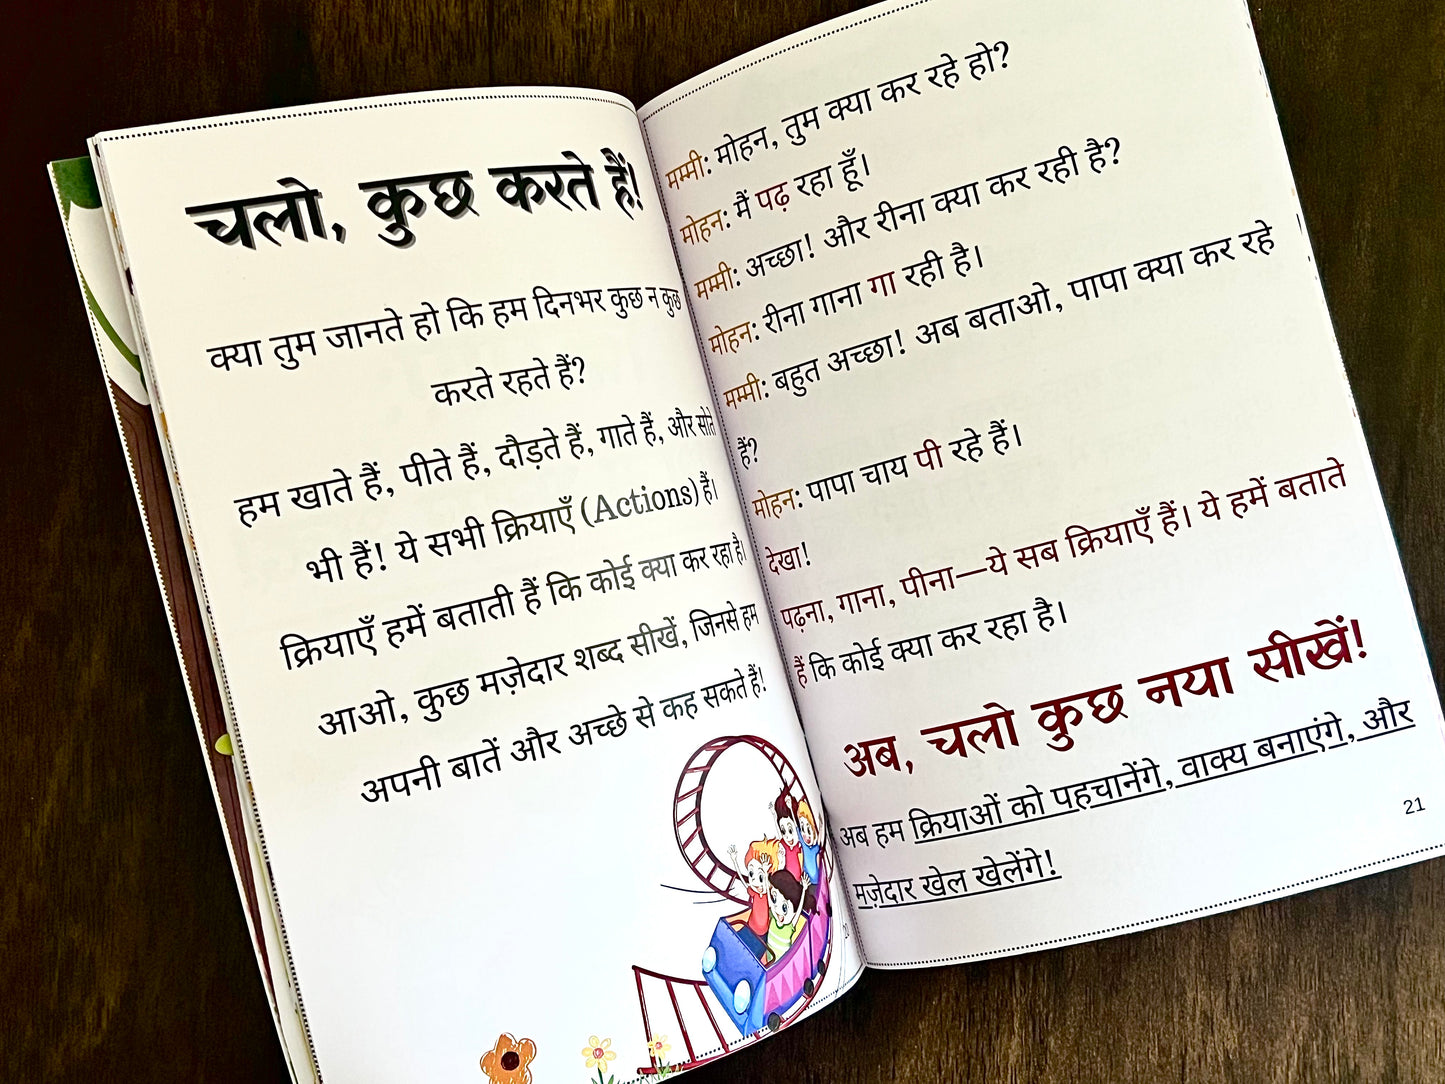 चलो, कुछ करते हैं!
क्या तुम जानते हो कि हम दिनभर कुछ न कुछ
करते रहते हैं?
हम खाते हैं, पीते हैं, दौड़ते हैं, गाते हैं, और सोते
भी हैं! ये सभी क्रियाएँ (Actions) हैं।
क्रियाएँ हमें बताती हैं कि कोई क्या कर रहा है।
आओ, कुछ मज़ेदार शब्द सीखें, जिनसे हम
अपनी बातें और अच्छे से कह सकते हैं!
मम्मी: मोहन, तुम क्या कर रहे हो?
मोहन: मैं पढ़ रहा हूँ।
मम्मी: अच्छा! और रीना क्या कर रही है?
मोहन: रीना गाना गा रही है।
मम्मी: बहुत अच्छा! अब बताओ, पापा क्या कर रहे
हैं?
मोहन: पापा चाय पी रहे हैं।
देखा!
पढ़ना, गाना, पीना—ये सब क्रियाएँ हैं। ये हमें बताते
हैं कि कोई क्या कर रहा है।
अब, चलो कुछ नया सीखें!
अब हम क्रियाओं को पहचानेंगे, वाक्य बनाएंगे, और
मज़ेदार खेल खेलेंगे!
21